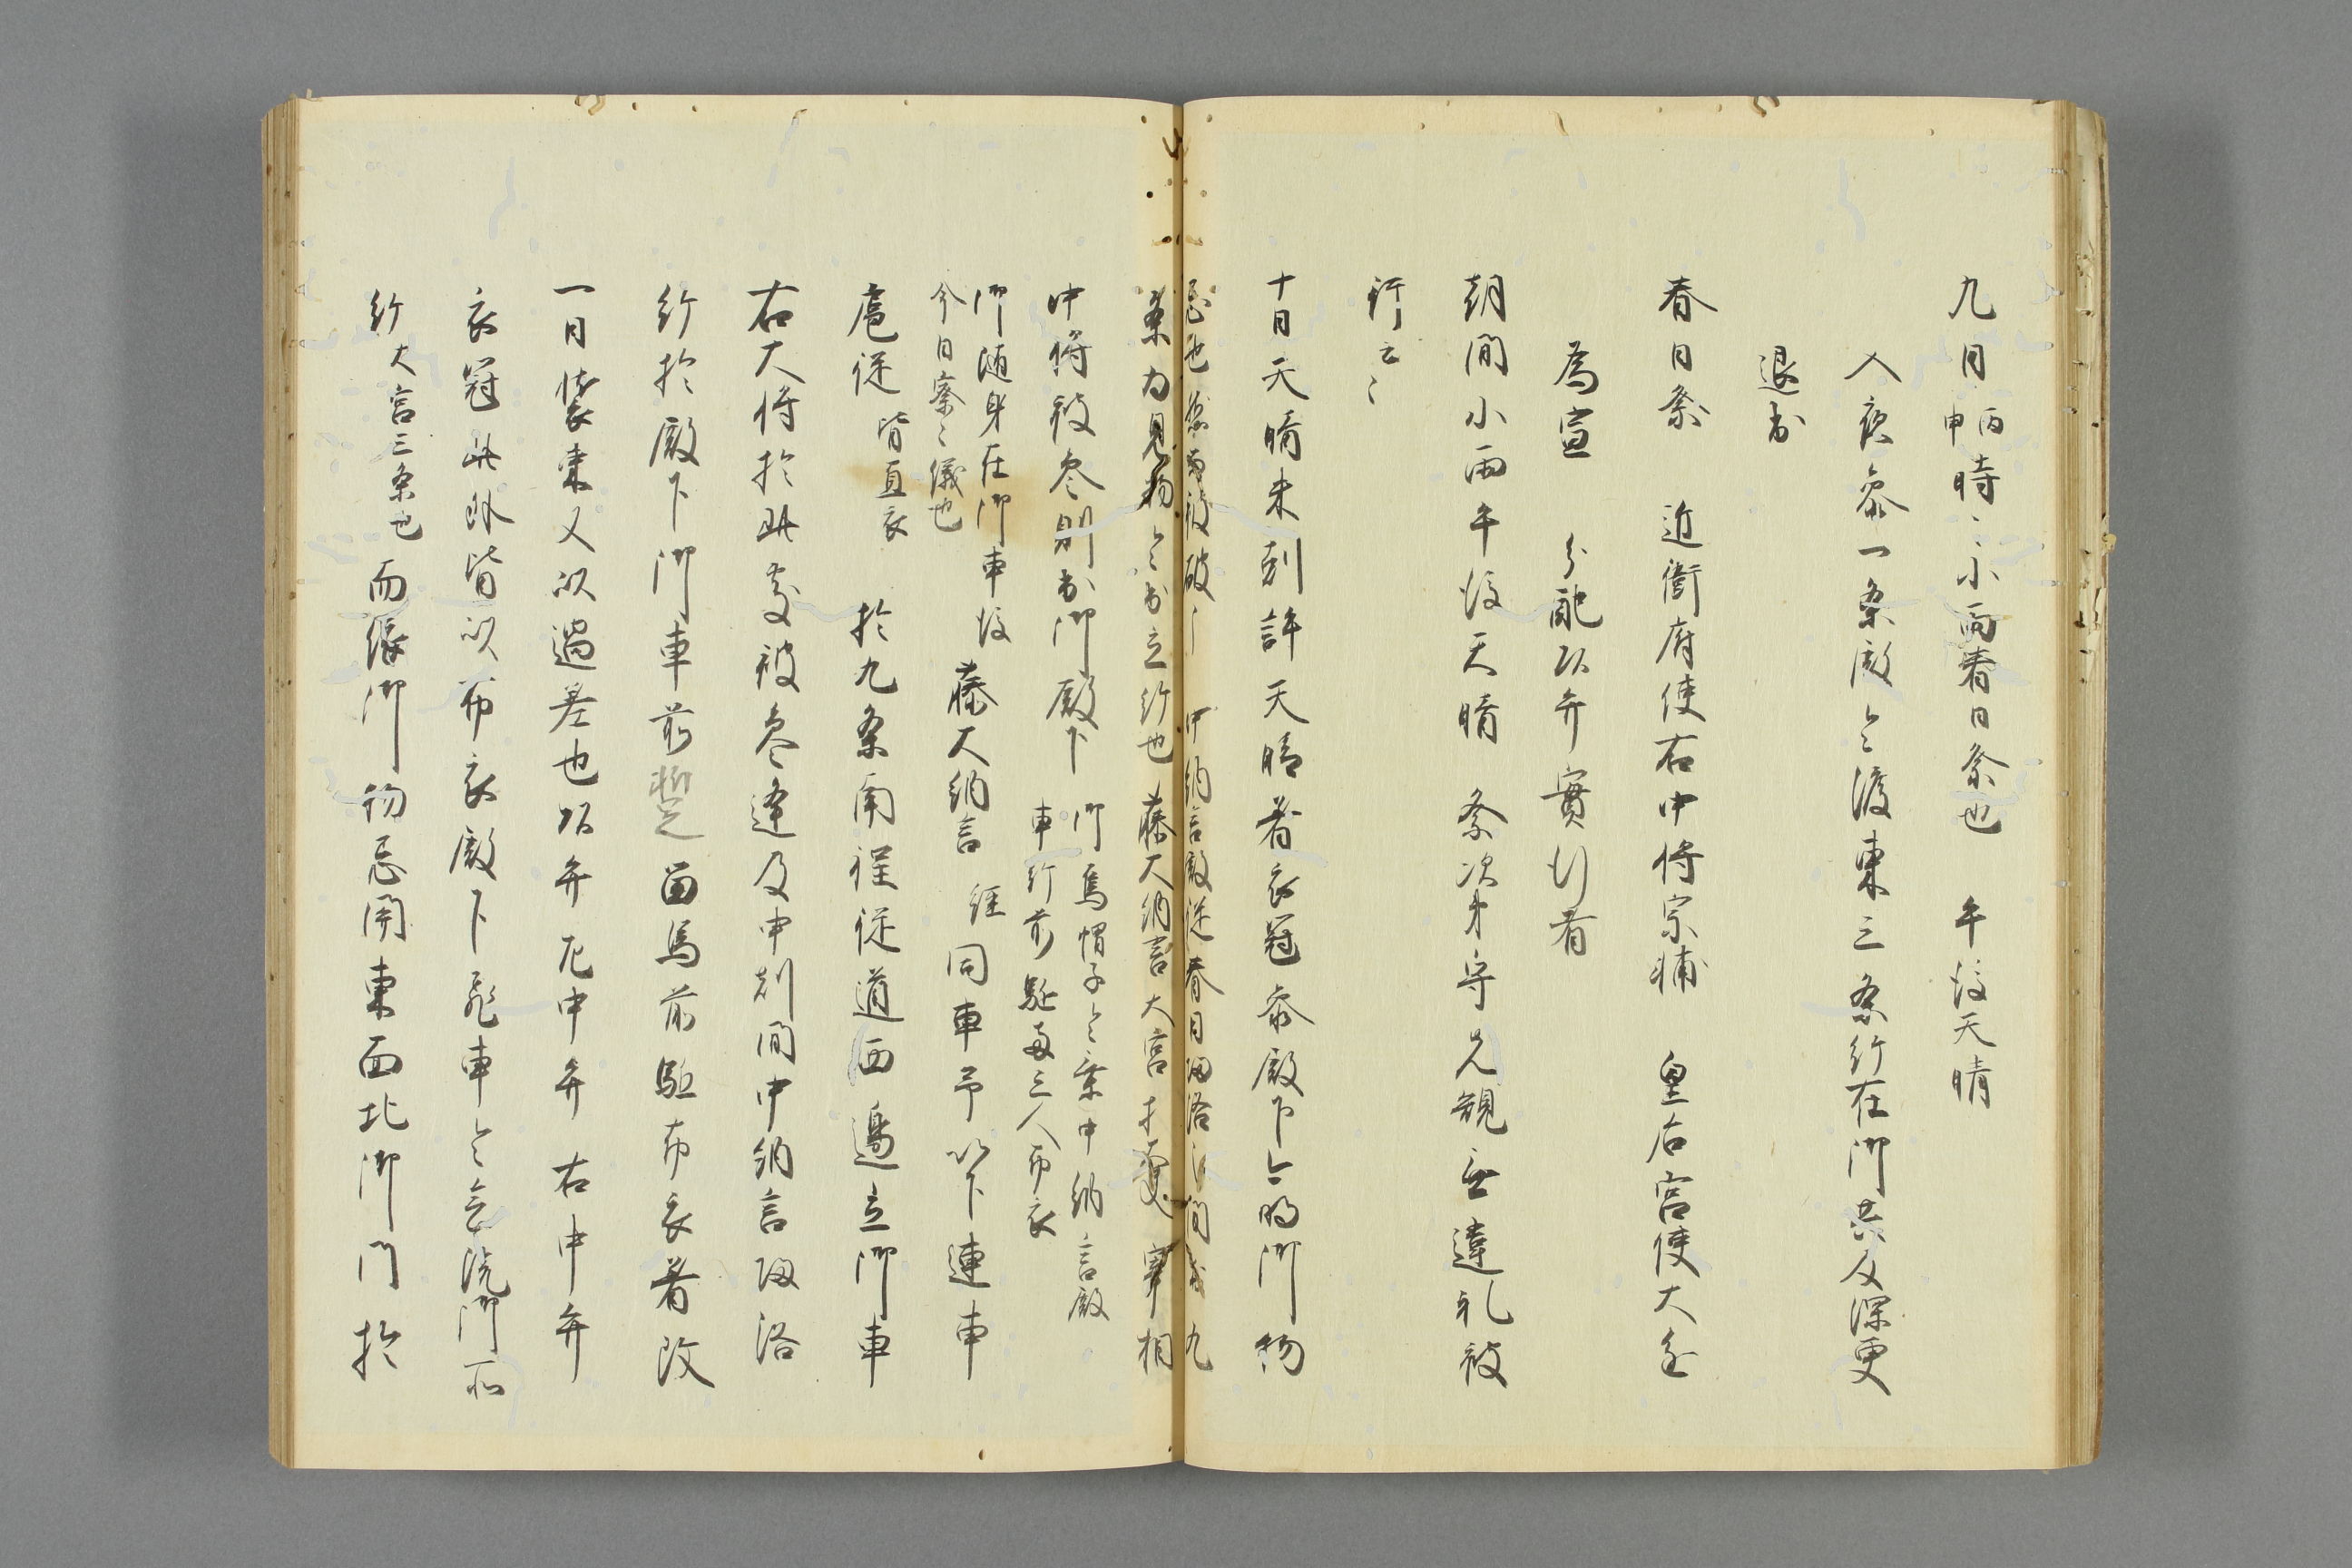 九日丙申時々小雨春日祭也 午後天晴
入夜参一条殿令渡東三条給在御共及深更
退出
春日祭 近衛府使右中将宗輔 皇后宮使大進
為宣 分配頭弁實行者
朝間小雨午後天晴 祭次第守先規無違礼被
行云々
十日天晴未剋許天晴着衣冠参殿下今明御物
忌也 被破 中納言殿従春日帰洛 間 九
条為見物令出立給也 藤大納言 大宮大夫 宰相
中将被参則出御殿下 御烏帽子令乗中納言殿
車給前駈両三人布衣
御随身在御車後
今日密々儀也 藤大納言 経 同車予以下連車
扈従 皆直衣 於九条南程従道西邊立御車
右大将於此處被参逢及申剋間中納言帰洛
給於殿下御車前暫留馬前駈布衣着改
一日装束又以過差也頭弁左中弁右中弁
衣冠此外皆以布衣殿下 車令 院御所
給 大宮三条也 而 御物忌開東面北御門於